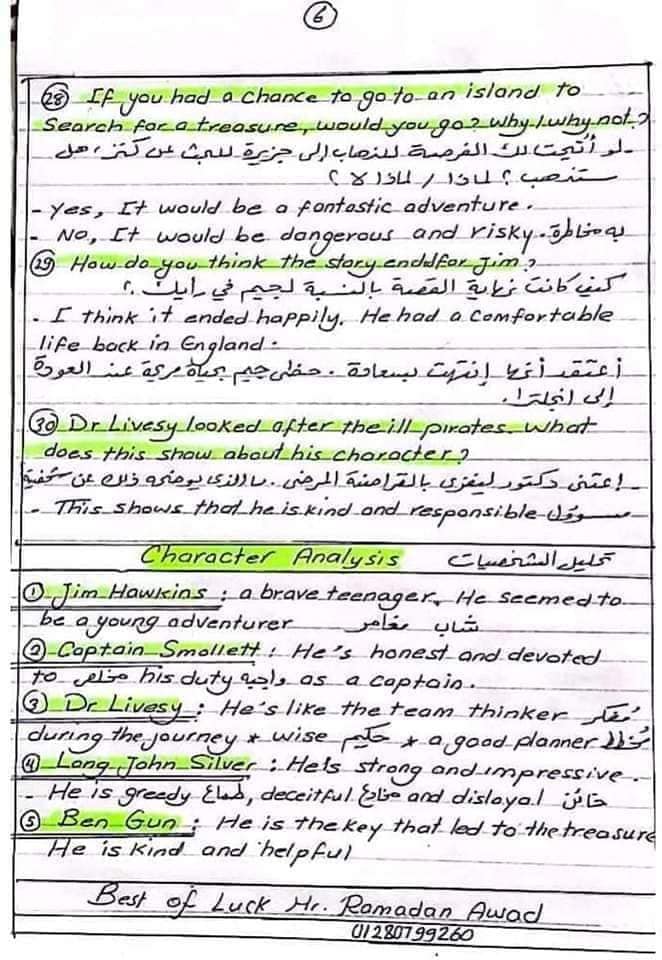 6
28 If you had a chance to go to an island to
Search for a treasure, would you go? Why / why not?
- لو أتيحت لك الفرصة للذهاب إلى جزيرة للبحث عن كنز، هل
ستذهب؟ لماذا / لماذا لا؟
- Yes, It would be a fantastic adventure.
- No, It would be dangerous and risky. به مخاطرة
29 How do you think the story endd for Jim?
كيف كانت نهاية القصة بالنسبة لجيم في رأيك؟
- I think it ended happily. He had a comfortable
life back in England.
أعتقد أنها إنتهت بسعادة. حظى جيم بحياة مريحة عند العودة
إلى انجلترا.
30 Dr Livesy looked after the ill pirates. What
does this show about his character?
- إعتنى دكتور ليفزى بالقراصنة المرضى. ما الذى يوضحه ذلك عن شخصيته
- This shows that he is kind and responsible مسؤول
Character Analysis تحليل الشخصيات
1 Jim Hawkins : a brave teenager. He seemed to
be a young adventurer شاب مغامر
2 Captain Smollett : He's honest and devoted
to مخلص his duty واجبه as a captain.
3 Dr Livesy : He's like the team thinker مُفكر
during the journey * wise حكيم * a good planner مُخطط
4 Long John Silver : He's strong and impressive.
- He is greedy طماع, deceitful مخادع and disloyal خائن
5 Ben Gun : He is the key that led to the treasure
He is kind and helpful
Best of Luck Mr. Ramadan Awad
01280799260